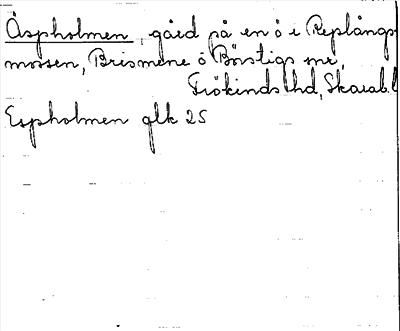 Äspholmen, gård på en ö i Replångs-
mossen, Brismene o Börstigs snr,
Frökinds hd, Skarab. l
Espholmen glk 25